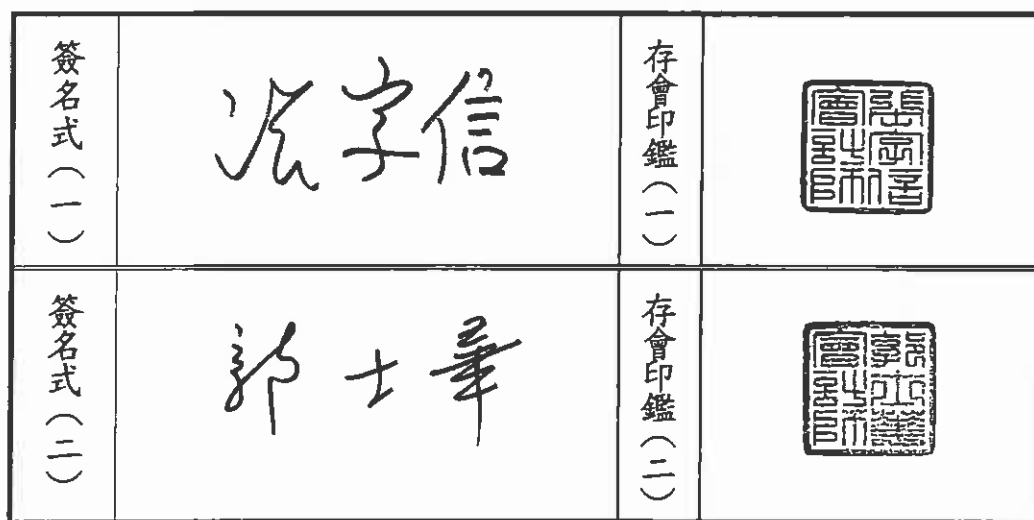 簽名式(一)
張字信
存會印鑑(一)
張字信
會計師
簽名式(二)
郭士華
存會印鑑(二)
郭士華
會計師